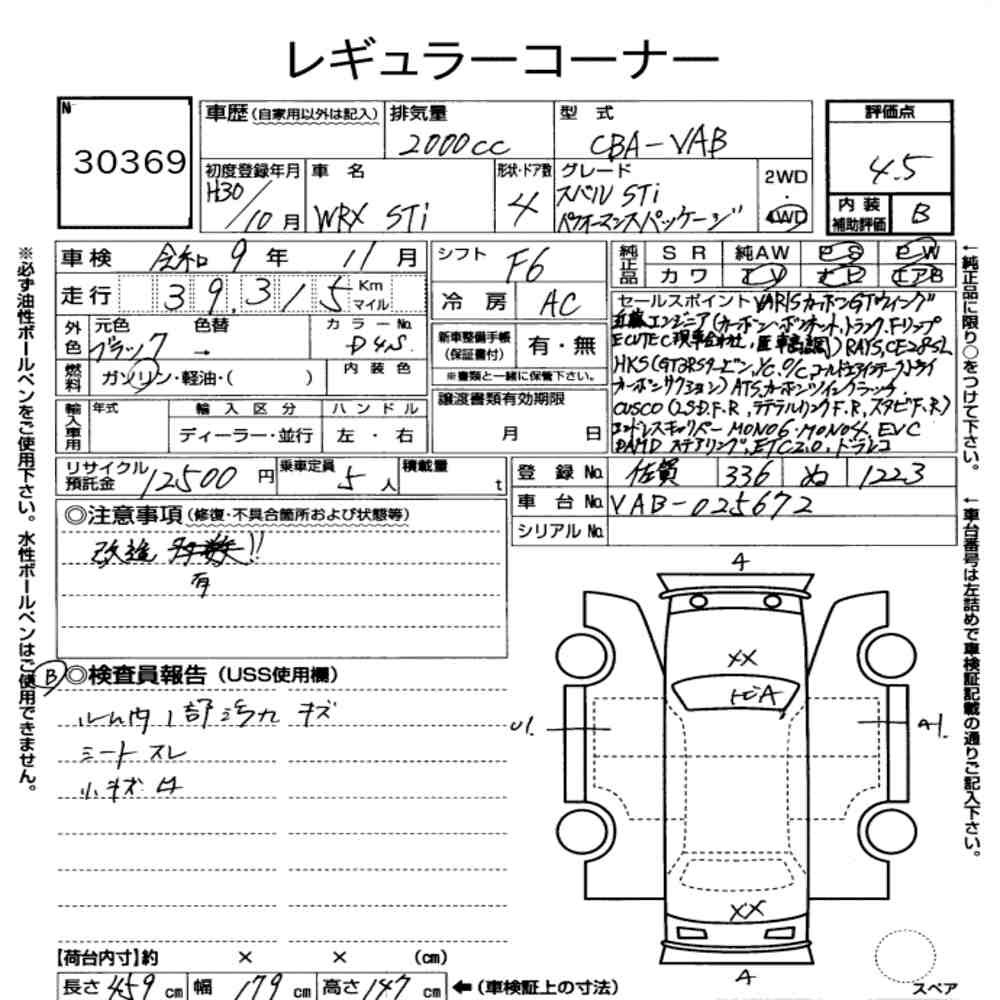 レギュラーコーナー
N
30369
車歴(自家用以外は記入)
排気量
2000cc
型式
CBA-VAB
評価点
4.5
初度登録年月
H30/10月
車名
WRX STi
形状・ドア数
4
グレード
スバル STi
パフォーマンスパッケージ
2WD
・
4WD
内装
補助評価
B
車検 令和9年11月
走行 39,315 Km
マイル
シフト F6
冷房 AC
純正品
SR 純AW PS PW
カワ TV ナビ エアB
外色
元色 色替
ブラック →
カラーNo.
D4S
内装色
燃料
ガソリン・軽油・( )
新車整備手帳
(保証書付)
有・無
※書類と一緒に保管下さい。
セールスポイント VARISカーボンGTウィング
エンジニア(カーボンボンネット,トランク,Fリップ
ECUTEC現車合わせ,車高調)RAYS,CE28SL
HKS(GT
カーボンサクション)ATSカーボンツイン
CUSCO(LSD.F.R,ラテラルリンクF.R,スタビF.R)
エンドレスキャリパーMONO6・MONO4,EVC
DAMDステアリング,ETC2.0,ドラレコ
輸入車用
年式
輸入区分
ディーラー・並行
ハンドル
左・右
譲渡書類有効期限
月 日
リサイクル
預託金
12500円
乗車定員
5人
積載量
t
登録No. 佐賀 336 ぬ 1223
車台No. VAB-025672
シリアルNo.
◎注意事項(修復・不具合箇所および状態等)
改造
有
!!
B
◎検査員報告(USS使用欄)
キズ
シートスレ
小キズ
4
XX
トビA
U1
A1
XX
4
スペア
【荷台内寸】約 × × (cm)
長さ459cm 幅179cm 高さ147cm ←(車検証上の寸法)
※必ず油性ボールペンをご使用下さい。水性ボールペンはご使用できません。
←純正品に限り○をつけて下さい。
←車台番号は左詰めで車検証記載の通りご記入下さい。